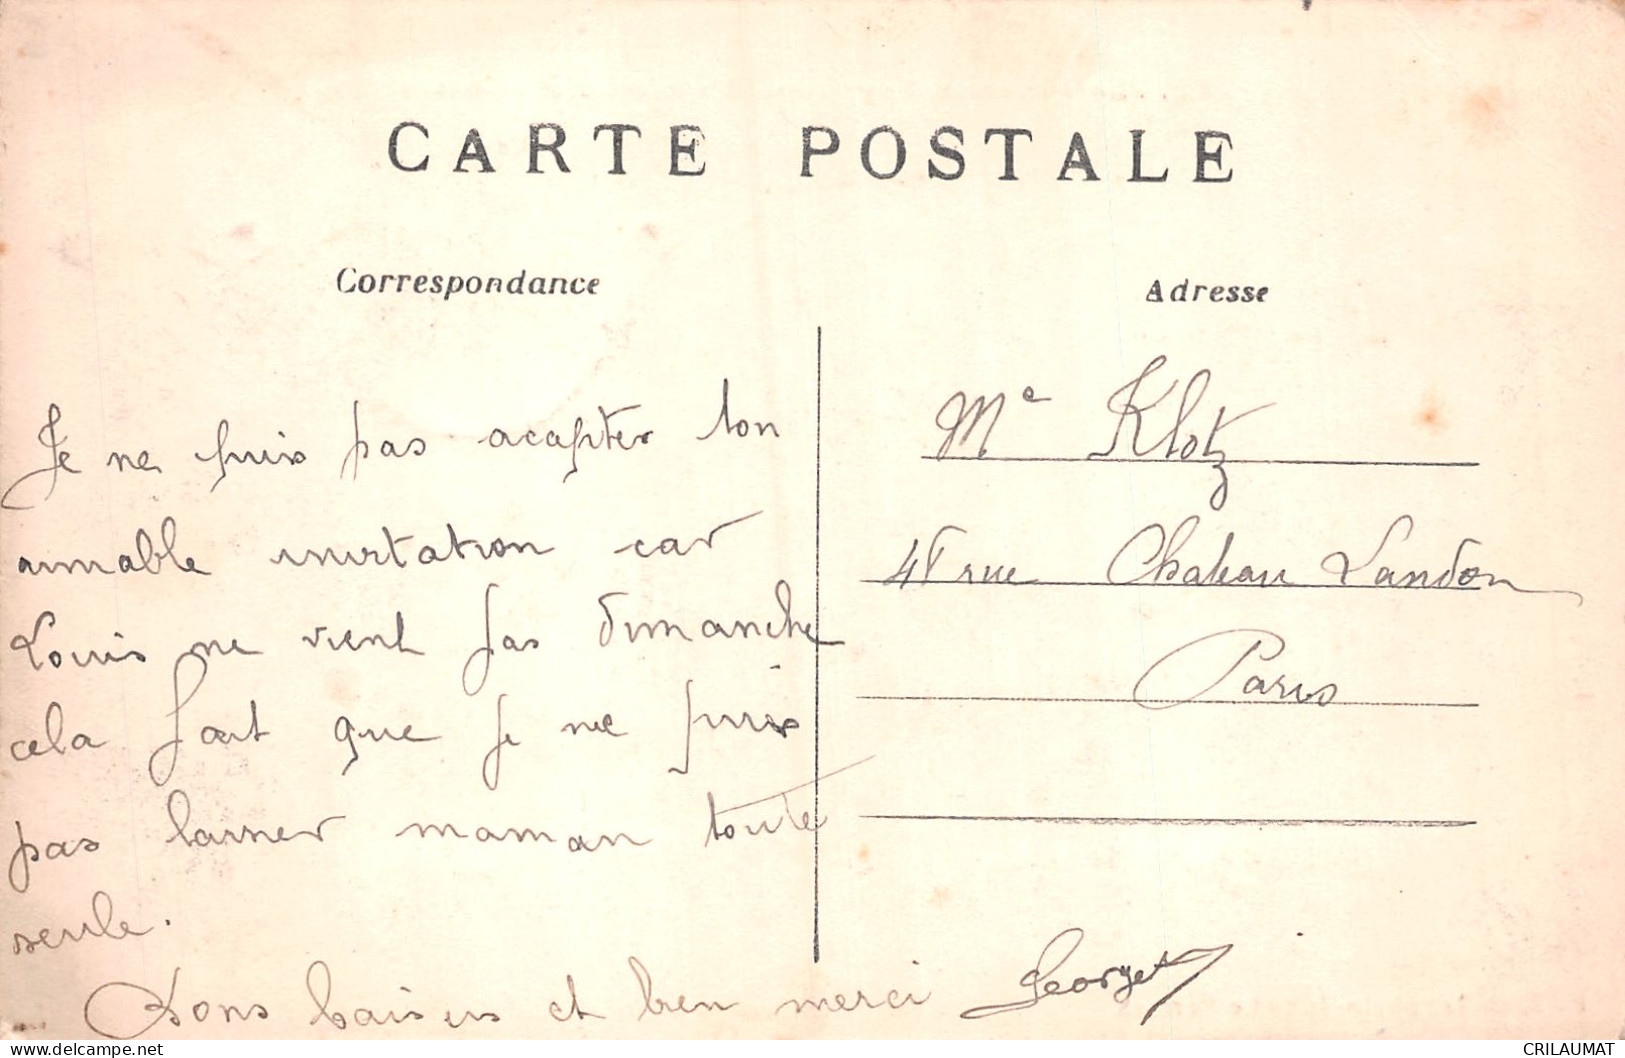 CARTE POSTALE
Correspondance
Je ne puis pas acapter ton
aimable invitation car
Louis ne vient pas dimanche
cela fait que je ne puis
pas laisser maman toute
seule.
Bons baisers et bien merci Georget
Adresse
Me Klotz
rue Chateau Landon
Paris
CRILAUMAT